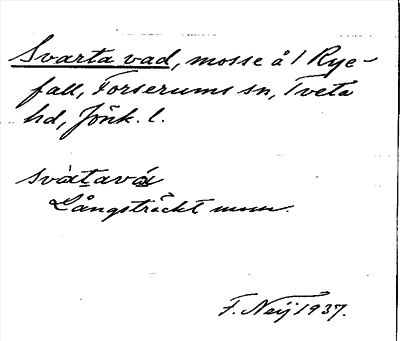 Svarta vad, mosse å 1 Rye-
fall, Forserums sn, Tveta
hd, Jönk. l.
Långsträckt
F. Neij 1937.